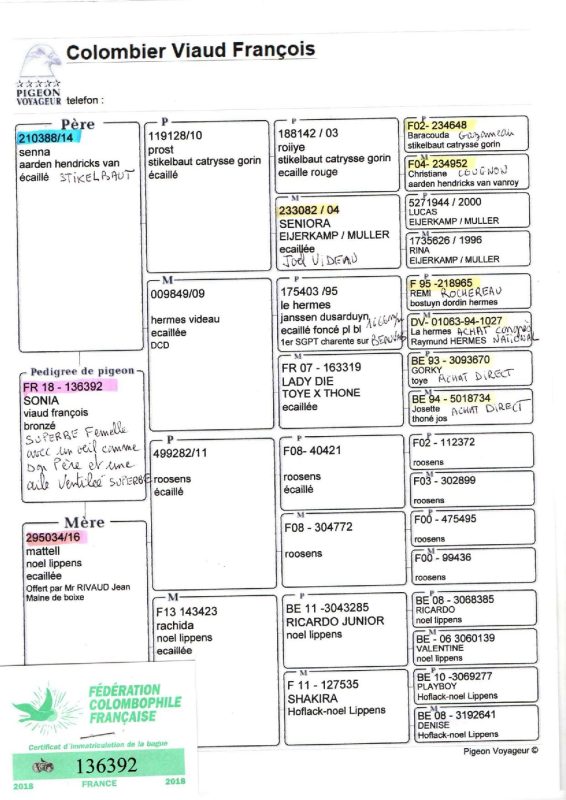 Colombier Viaud François
PIGEON
VOYAGEUR
telefon :
Père
210388/14
senna
aarden hendricks van
écaillé STIKELBAUT
Pedigree de pigeon
FR 18 - 136392
SONIA
viaud françois
bronzé
SUPERBE Femelle
avec un oeil comme
Son Père et une
aile Ventilée SUPERBE
Mère
295034/16
mattell
noel lippens
ecaillée
Offert par Mr RIVAUD Jean
Maine de boixe
P
119128/10
prost
stikelbaut catrysse gorin
écaillé
M
009849/09
hermes videau
ecaillée
DCD
P
499282/11
roosens
écaillé
M
F13 143423
rachida
noel lippens
ecaillée
P
188142 / 03
roiiye
stikelbaut catrysse gorin
ecaille rouge
M
233082 / 04
SENIORA
EIJERKAMP / MULLER
ecaillée
Joël VIDEAU
P
175403 /95
le hermes
janssen dusarduyn
ecaillé foncé pl bl
1er SGPT charente sur BEAUVAIS
M
FR 07 - 163319
LADY DIE
TOYE X THONE
ecaillée
P
F08- 40421
roosens
écaillé
M
F08 - 304772
roosens
P
BE 11 -3043285
RICARDO JUNIOR
noel lippens
M
F 11 - 127535
SHAKIRA
Hoflack-noel Lippens
P
F02- 234648
Baracouda
stikelbaut catrysse gorin
M
F04- 234952
Christiane COUGNON
aarden hendricks van vanroy
P
5271944 / 2000
LUCAS
EIJERKAMP / MULLER
M
1735626 / 1996
RINA
EIJERKAMP / MULLER
P
F 95 -218965
REMI ROCHEREAU
bostuyn dordin hermes
M
DV- 01063-94-1027
La hermes ACHAT Congrès
Raymund HERMES NATIONAL
P
BE 93 - 3093670
GORKY
toye ACHAT DIRECT
M
BE 94 - 5018734
Josette ACHAT DIRECT
thoné jos
P
F02 - 112372
roosens
M
F03 - 302899
roosens
P
F00 - 475495
roosens
M
F00 - 99436
roosens
P
BE 08 - 3068385
RICARDO
noel lippens
M
BE - 06 3060139
VALENTINE
noel lippens
P
BE 10 -3069277
PLAYBOY
Hoflack-noel Lippens
M
BE 08 - 3192641
DENISE
Hoflack-noel Lippens
Pigeon Voyageur ©
FÉDÉRATION
COLOMBOPHILE
FRANÇAISE
Certificat d'immatriculation de la bague
136392
2018 FRANCE 2018